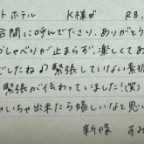 トホテル K様が R8.
合間に呼んで下さり、ありがとう
がしゃべりが止まらず、楽しくてあ
でしたね♪ 緊張していない素振
が伝わっていました!(笑)
ちゃい出来たら嬉しいなと思い
新膝 すみ